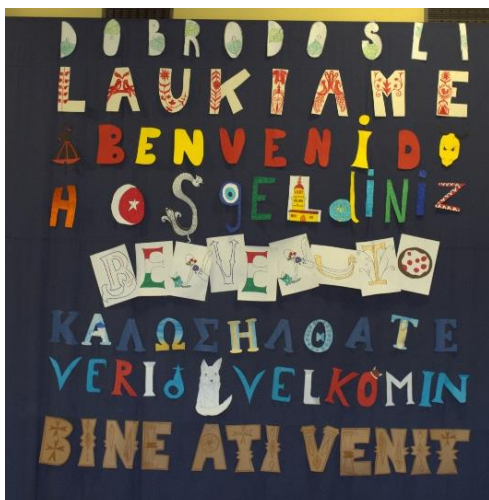 DOBRODOSLI
LAUKIAME
BENVENiDO
HOŞgELdiNiZ
BENVENUTO
ΚΑΛΩΣΗΛΘΑΤΕ
VERIð VELKOMIN
BINE ATI VENIT